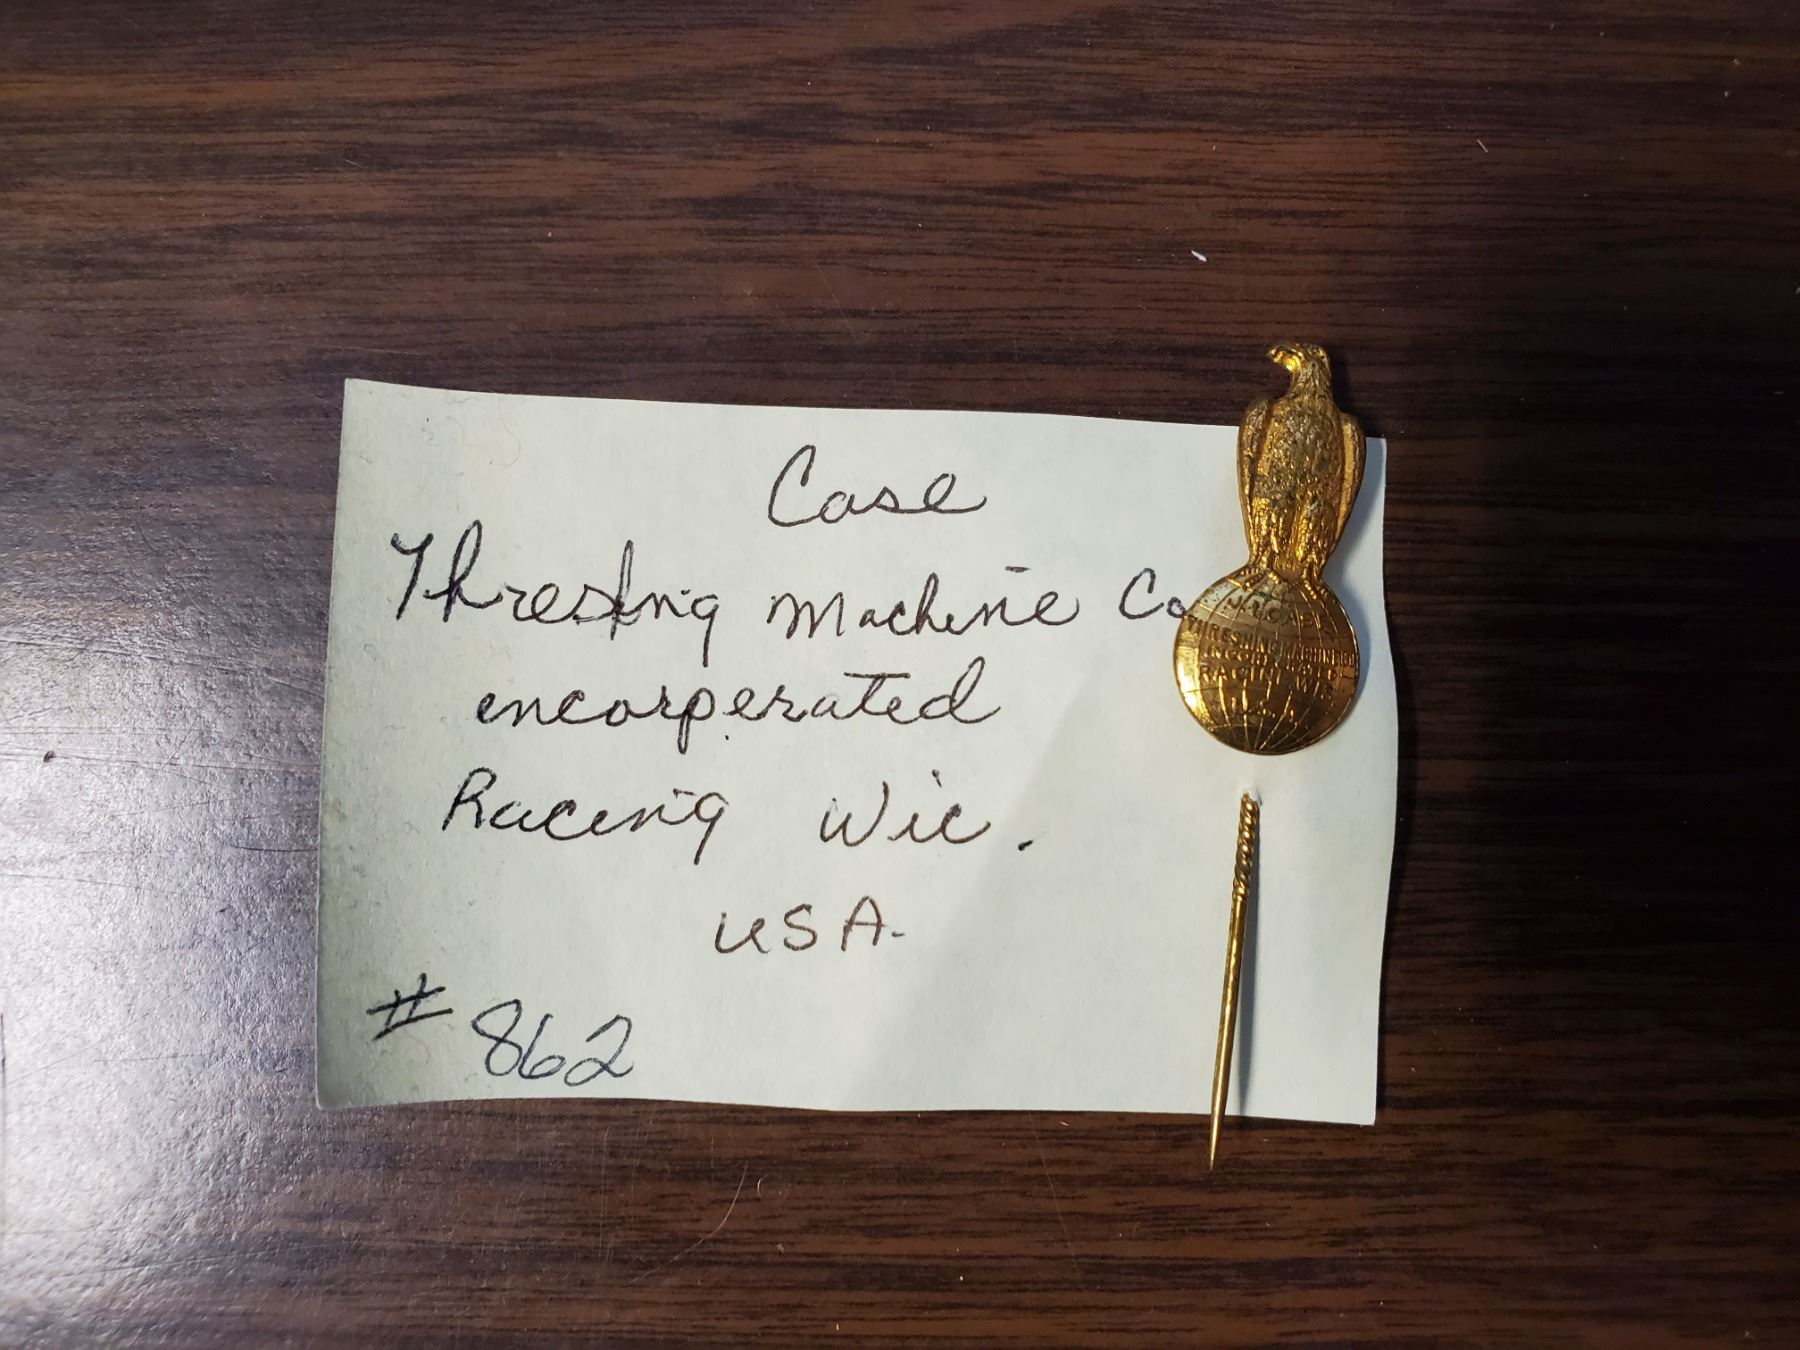 Case
Thresing Machine Co
encorperated
Raceing Wic.
USA.
#862
J.I. CASE
THRESHING MACHINE CO
INCORPORATED
RACINE WIS
U.S.A